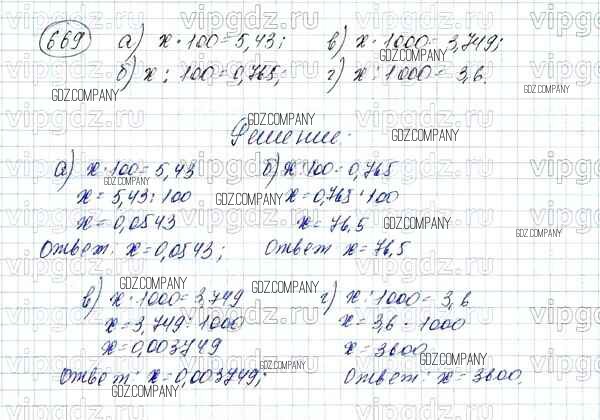 669 а) x · 100 = 5,43; в) x · 1000 = 3,749;
б) x : 100 = 0,765; г) x : 1000 = 3,6.
Решение.
а) x · 100 = 5,43 б) x : 100 = 0,765
x = 5,43 : 100 x = 0,765 · 100
x = 0,0543 x = 76,5
Ответ: x = 0,0543; Ответ x = 76,5
в) x · 1000 = 3,749 г) x : 1000 = 3,6
x = 3,749 : 1000 x = 3,6 · 1000
x = 0,003749 x = 3600
Ответ: x = 0,003749; Ответ: x = 3600.
vipgdz.ru
GDZ.COMPANY